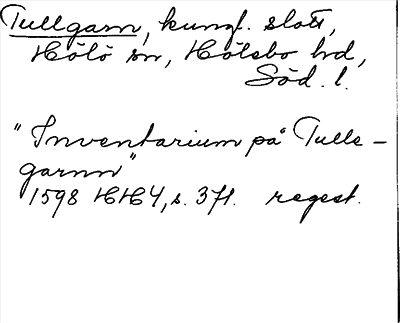 Tullgarn, kungl. slott,
Hölö sn, Hölebo hd,
Söd. l.
"Inventarium på Tulle-
garnn"
1598 HH4, s. 371. regest.